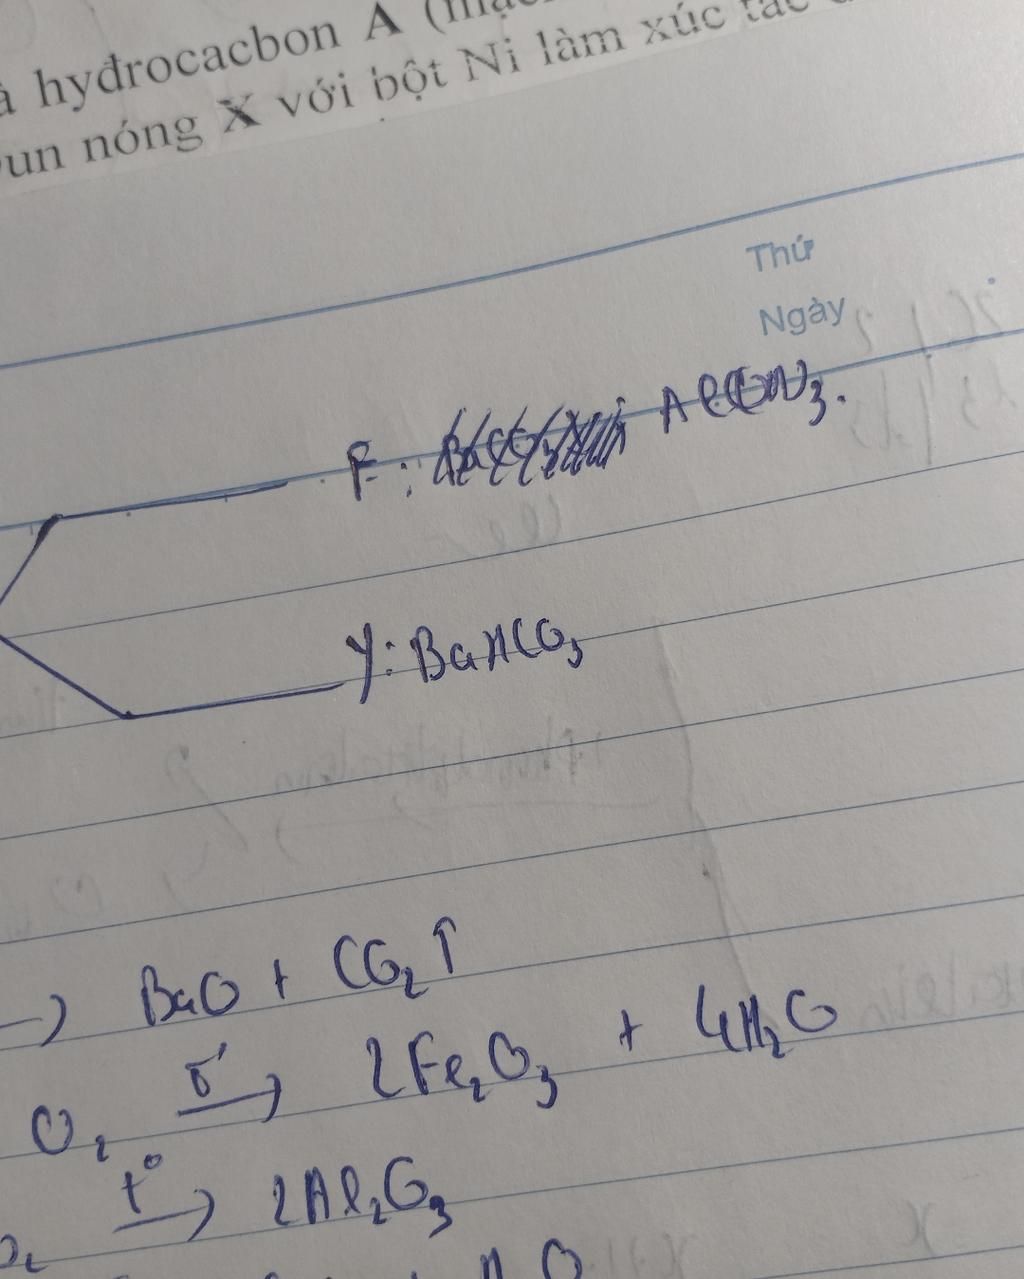 hyđrocacbon A
un nóng X với bột Ni làm xúc tác
Thứ
Ngày
F: Al(OH)3.
Y: BaHCO3
→ BaO + CO2↑
O2 t° → 2Fe2O3 + 4H2O
t° → 2Al2O3